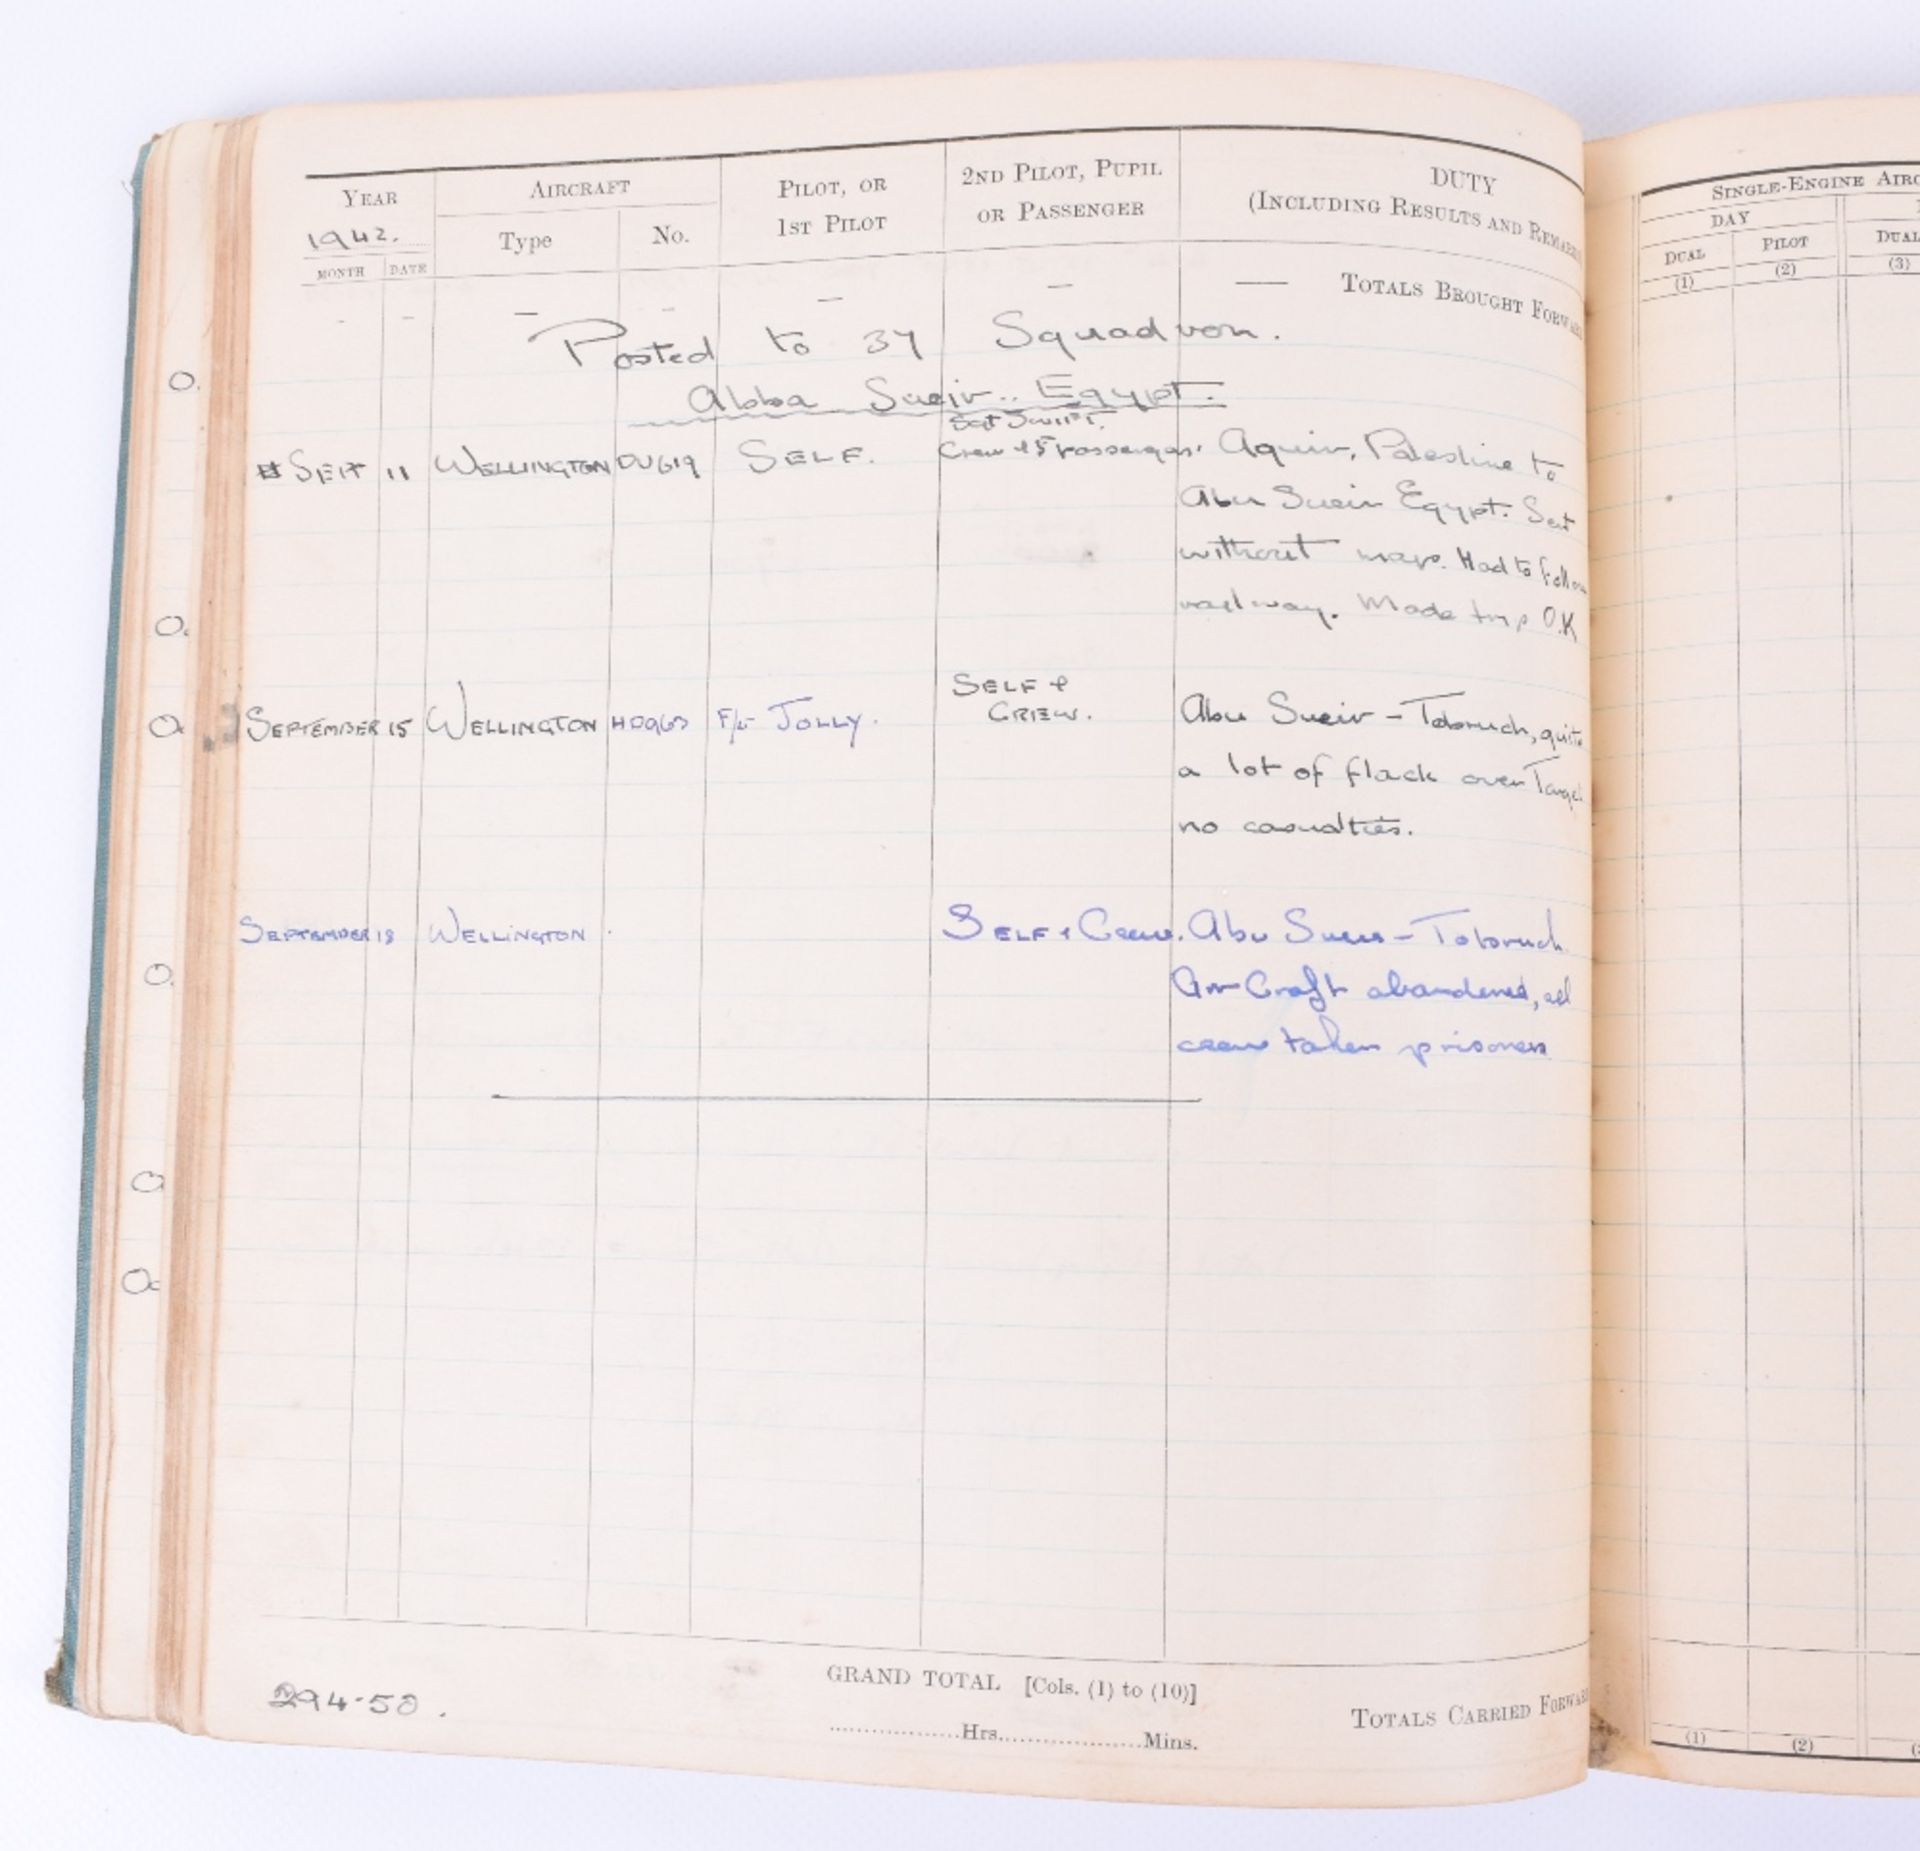 YEAR
1942.
MONTH DATE
AIRCRAFT
Type No.
PILOT, OR
1ST PILOT
2ND PILOT, PUPIL
OR PASSENGER
DUTY
(INCLUDING RESULTS AND REMARKS
TOTALS BROUGHT FORWAR
Posted to 37 Squadron.
Abba Sueir.. Egypt.
Sgt Swift.
SEPT 11 WELLINGTON DV619 SELF. Crew + 5 Passengers. Aquir, Palestine to
Abu Sueir Egypt. Set
without maps. Had to follow
railway. Made trip O.K
SEPTEMBER 15 WELLINGTON F/L JOLLY. SELF + CREW. Abu Sueir - Tobruch, quite
a lot of flack over Target
no casualties.
SEPTEMBER 18 WELLINGTON SELF + Crew. Abu Sueir - Tobruch
Air Craft abandoned, all
crew taken prisoners
294-50.
GRAND TOTAL [Cols. (1) to (10)]
Hrs. Mins.
TOTALS CARRIED FORWAR
SINGLE-ENGINE AIRC
DAY
DUAL PILOT DUAL
(1) (2) (3)
(1) (2)
O.
O.
O.
O.
O
O